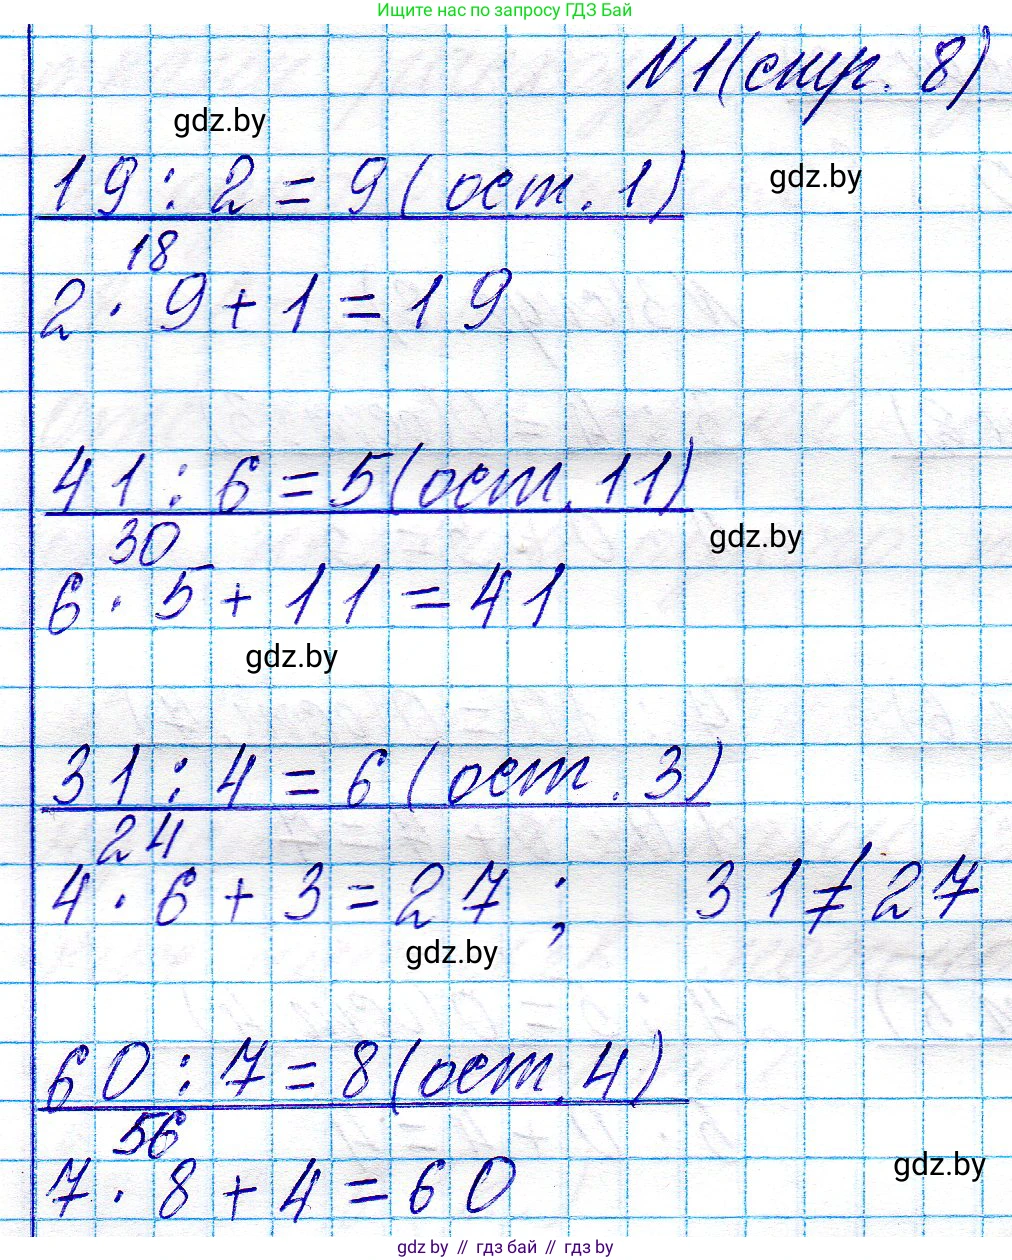 Ищите нас по запросу ГДЗ Бай
N1(стр. 8)
gdz.by
19 : 2 = 9 (ост. 1)
gdz.by
18
2 · 9 + 1 = 19
41 : 6 = 5 (ост. 11)
gdz.by
30
6 · 5 + 11 = 41
gdz.by
31 : 4 = 6 (ост. 3)
24
4 · 6 + 3 = 27 ; 31 ≠ 27
gdz.by
60 : 7 = 8 (ост. 4)
56
gdz.by
7 · 8 + 4 = 60
gdz.by // гдз бай // gdz by